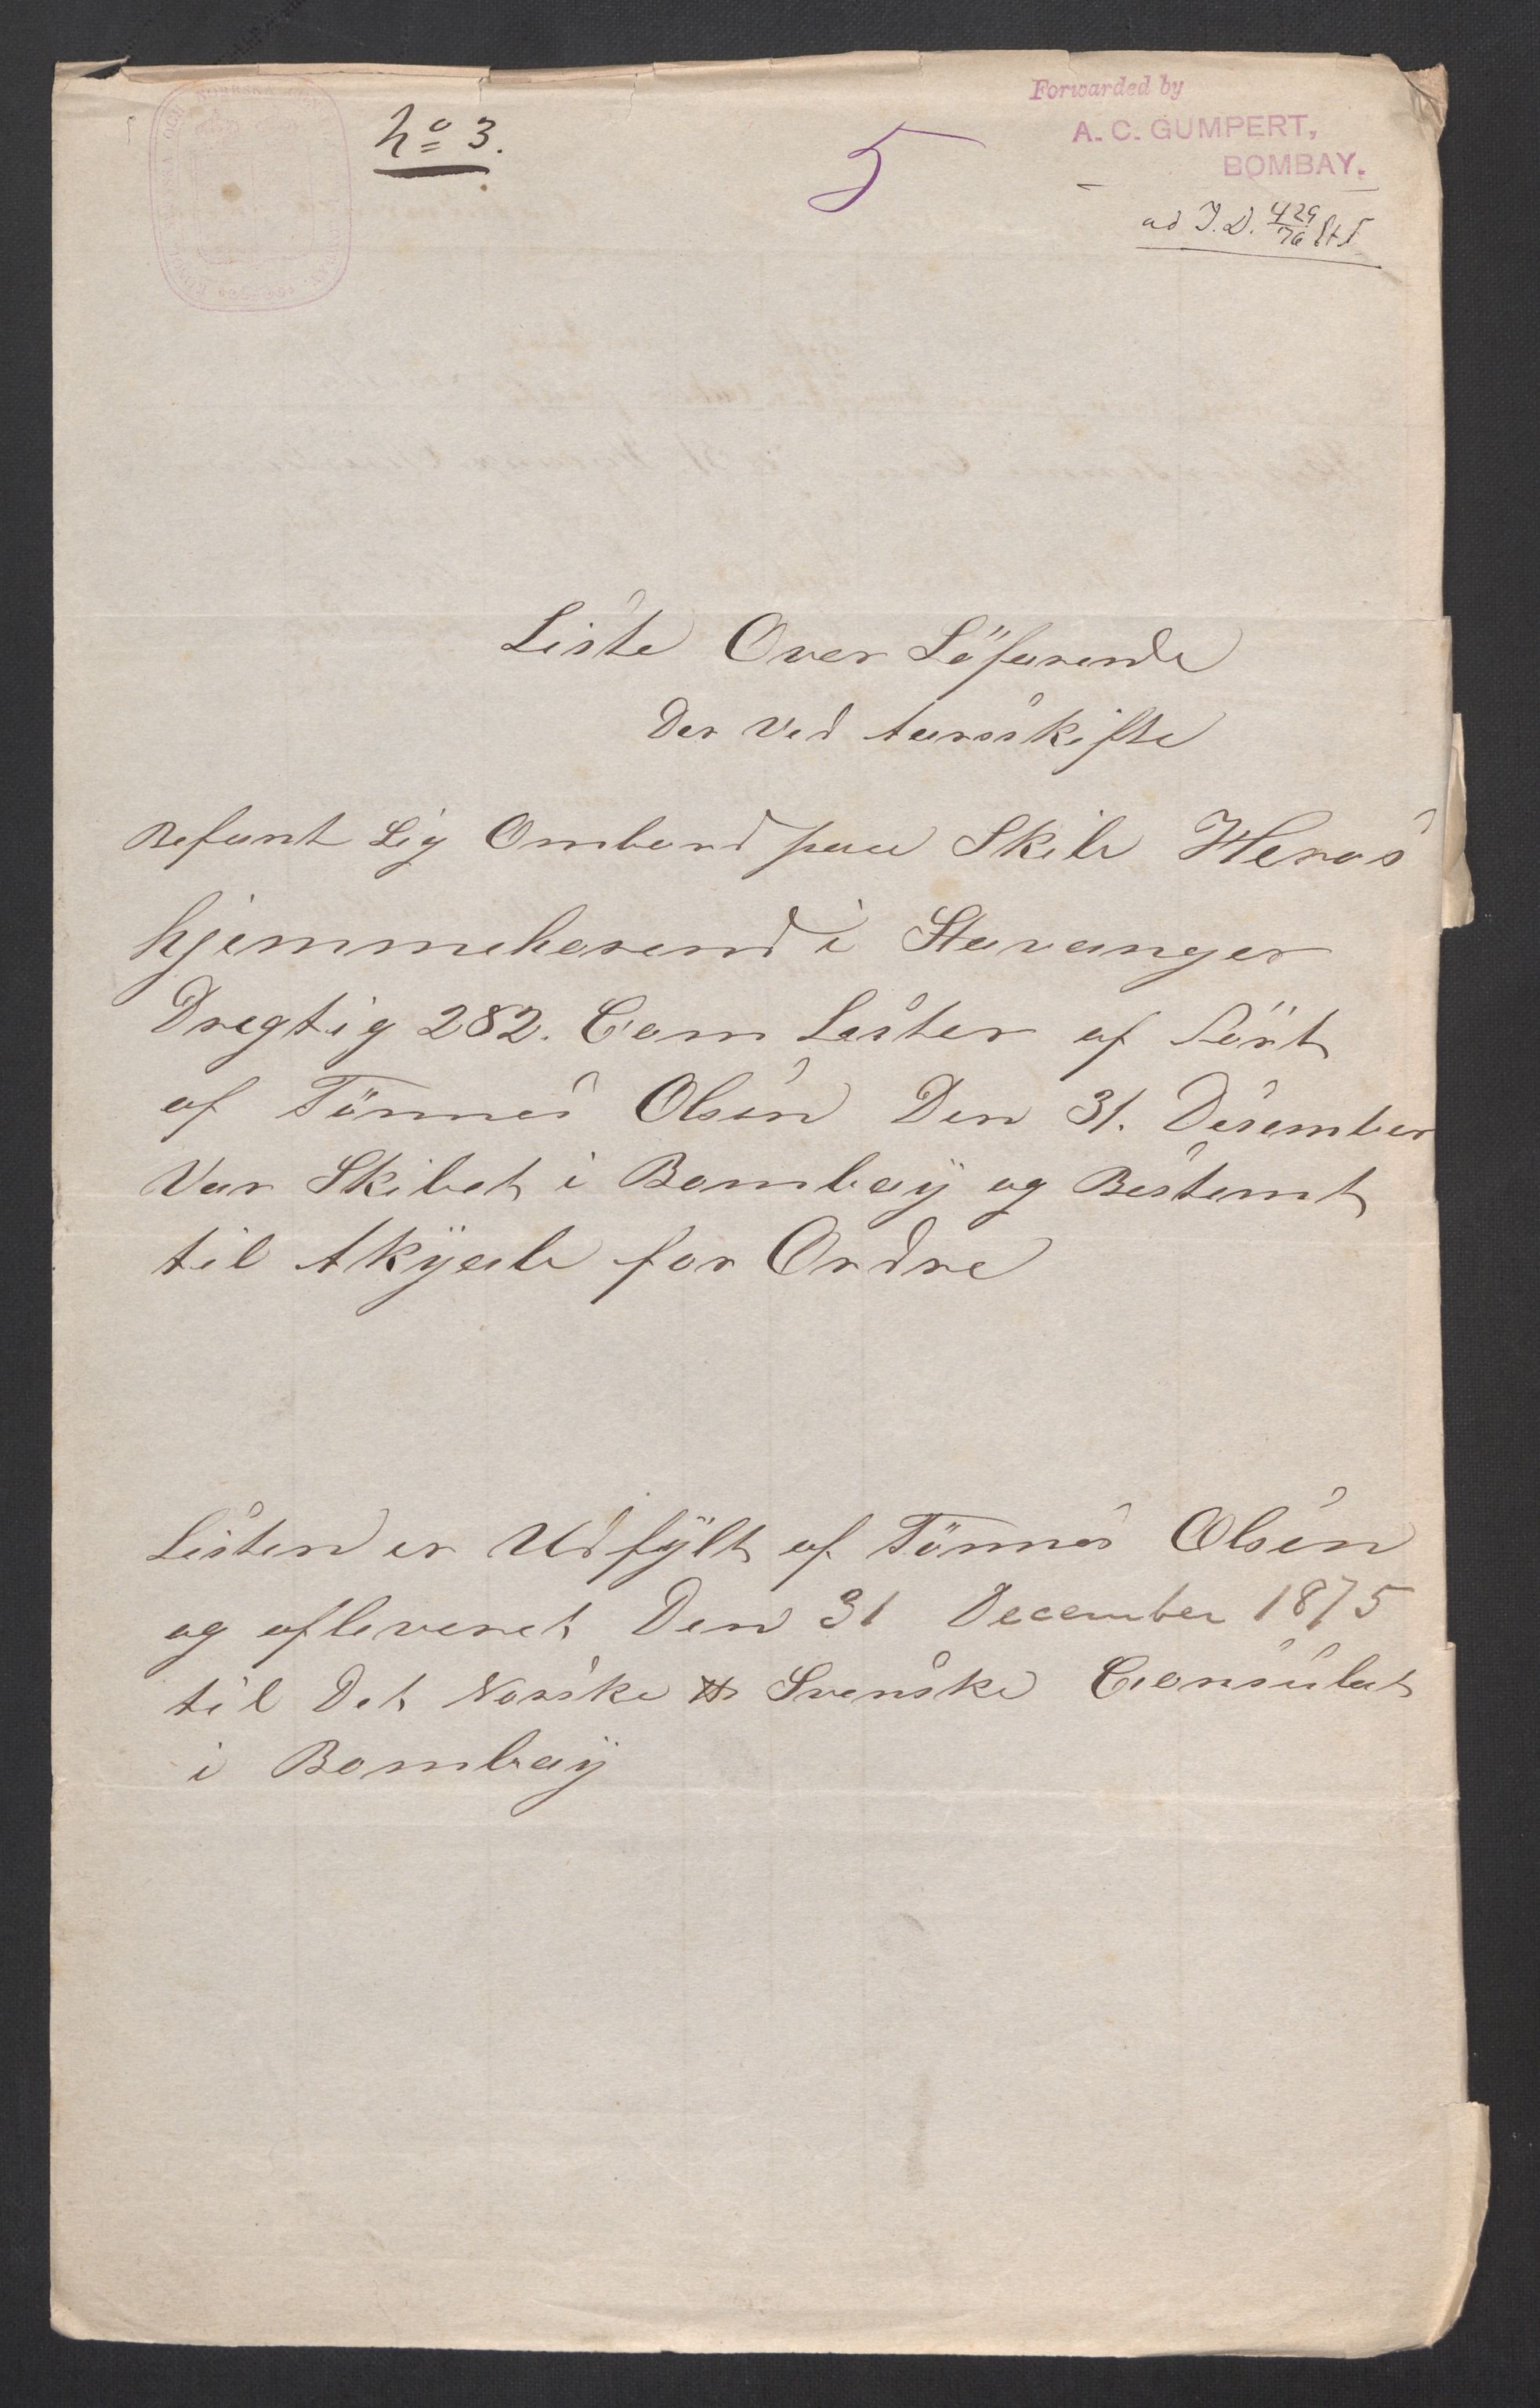 No 3.
5
Forwarded by
A. C. GUMPERT,
BOMBAY.
ad J.D. 429/76
Liste Over Söfarende
Der Ved Aarsskifte
Befant Sig Ombord paa Skib Heros
hjemmehorend i Stavanger
Dregtig 282. Com Lester af fört
af Tönnes Olsen Den 31. Desember
Var Skibet i Bombaÿ og Bestemt
til Akÿab for Ordre
Listen er Udfÿlt af Tönnes Olsen
og afleveret Den 31 December 1875
til Det Norske & Svenske Consulat
i Bombaÿ